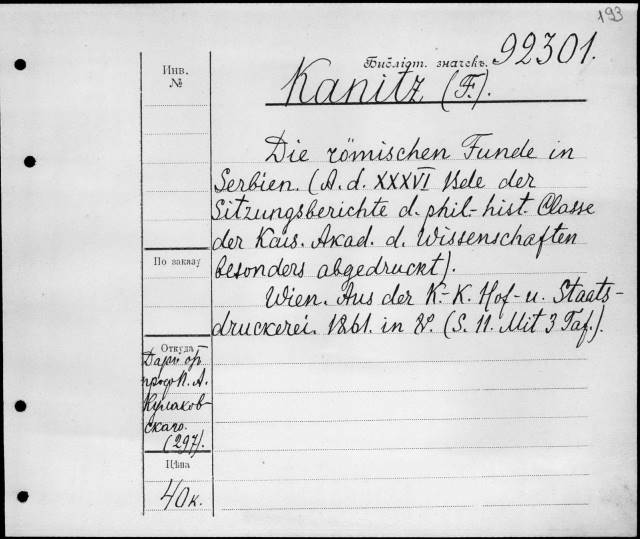 193
Библіот. значекъ. 92301.
Инв.
№
Kanitz (F.).
Die römischen Funde in
Serbien. (A. d. XXXVI Bde der
Sitzungsberichte d. phil.-hist. Classe
der Kais. Akad. d. Wissenschaften
besonders abgedruckt).
По заказу
Wien. Aus der K.-K. Hof- u. Staats-
druckerei. 1861. in 8º. (S. 11. Mit 3 Taf.).
Откуда
Даръ отъ
проф. П. А.
Кулаков-
скаго.
(297).
Цѣна
40 к.